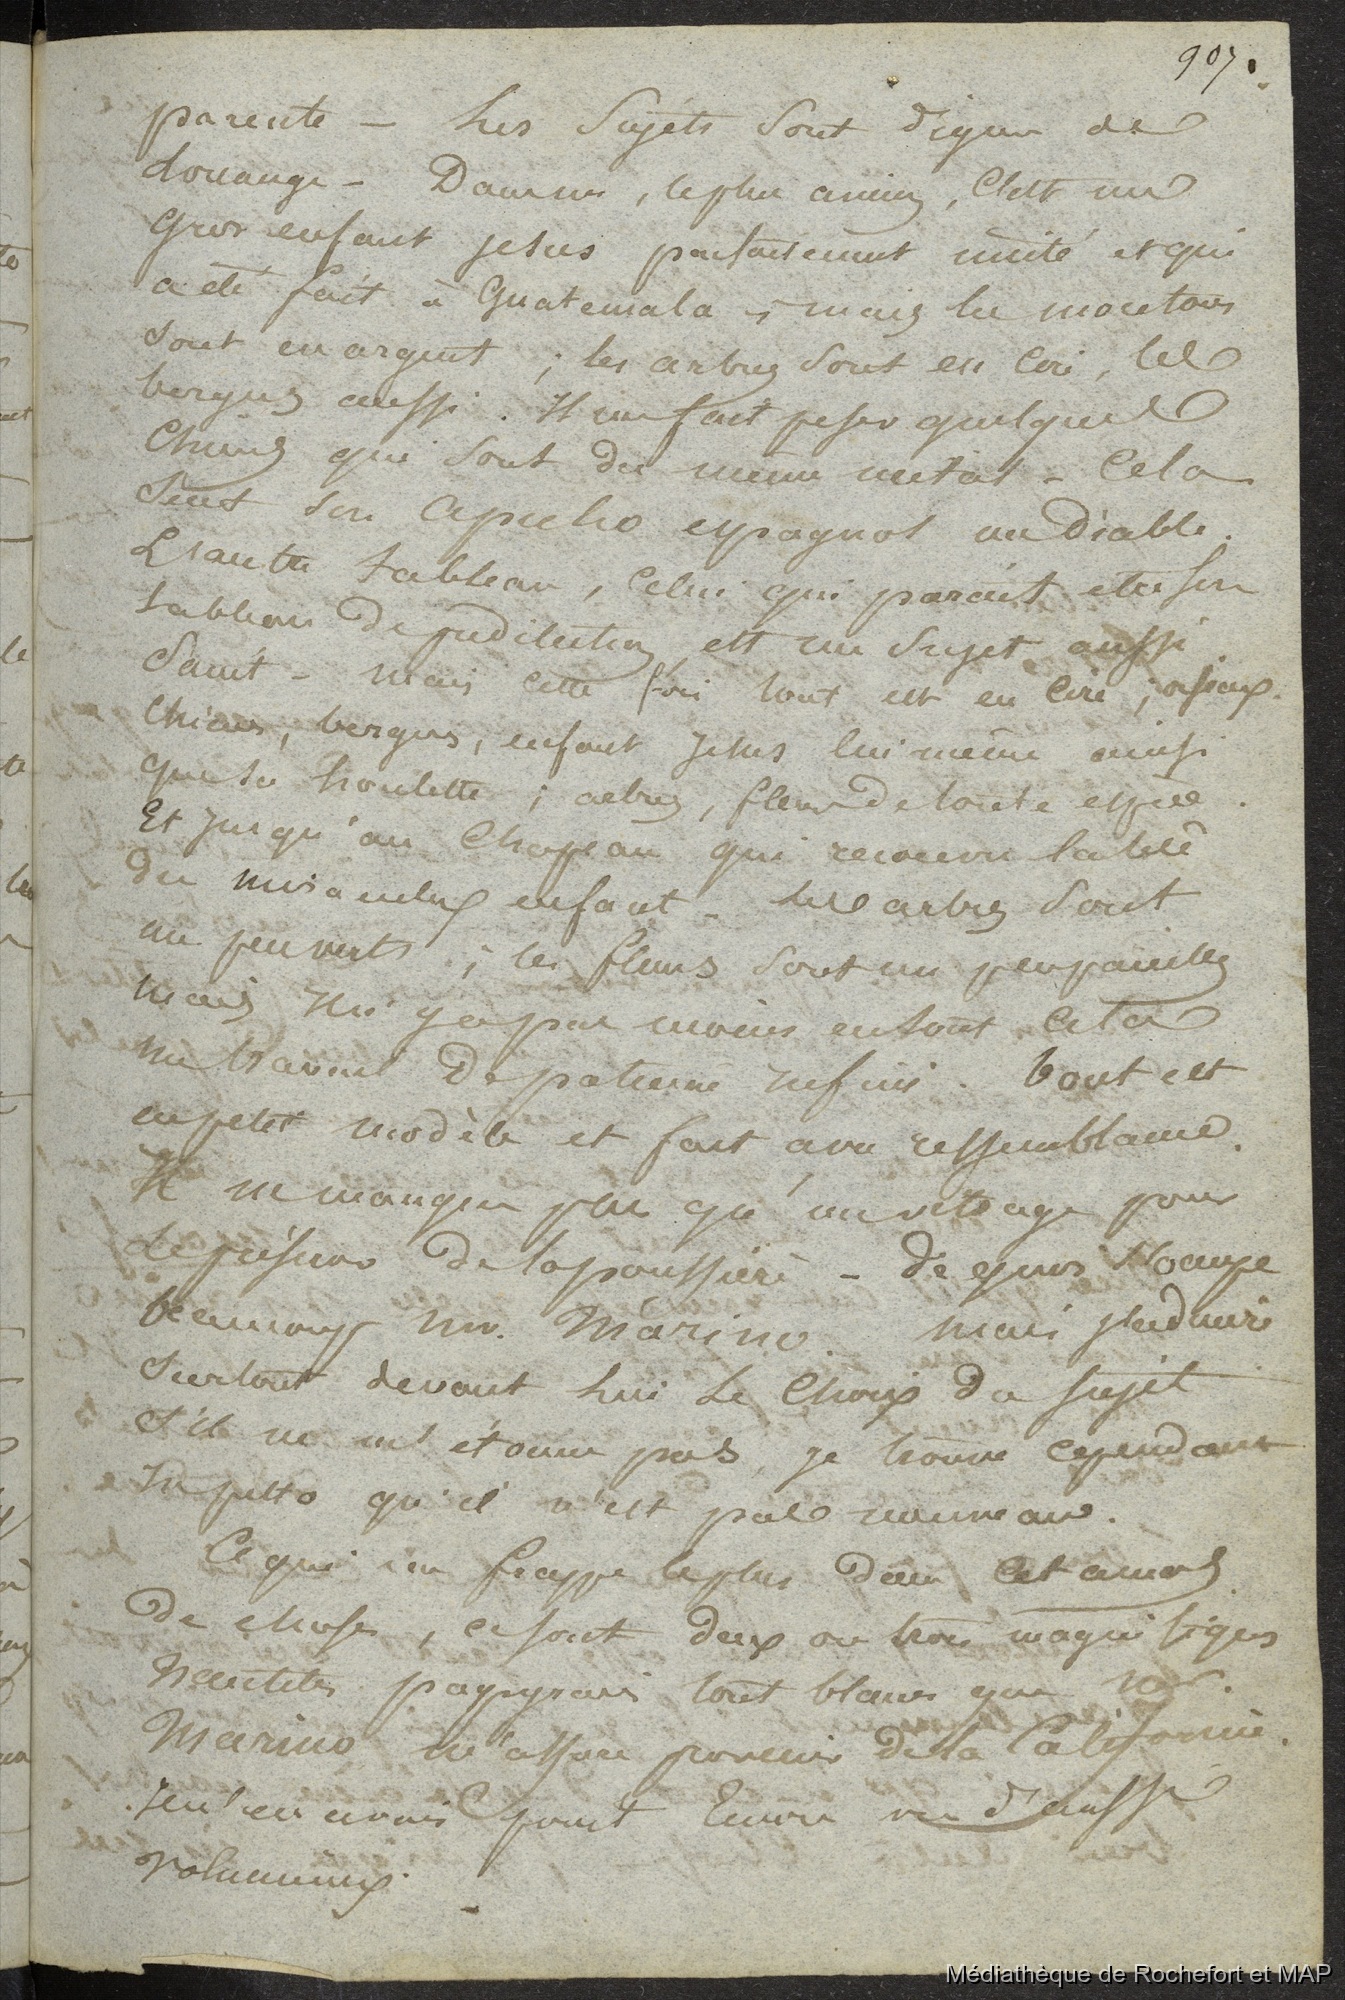 907.
parente – Les Sujéts Sont dignes de
Louange – Dans un, le plus ancien, C'est un
Gros enfant jesus parfaitement imité et qui
a été fait à Guatemala ; mais les moutons
Sont en argent ; les arbres Sont en Cire, les
bergers aussi. Il en fait peser quelques
Chiens qui Sont du même métal – Cela
Sent son espagnol en Diable.
L'autre tableau, Celui qui parait être son
tableau de prédilection est un Sujet aussi
Saint – mais cette fois tout est en Cire ; oiseaux.
Chiens, bergers, enfant Jesus lui même ainsi
que sa houlette ; arbres, fleurs de toute espèce.
Et Jusqu'au Chapeau qui recouvre la tête
du miraculeux enfant – Les arbres Sont
un peu verts ; les fleurs Sont un peu
mais Il n'y a pas moins en tout cela
un travail de patience infini. tout est
en petit modèle et fait avec ressemblance.
Il ne manque plus qu'un vitrage pour
le préserver de la poussière – de quoi S'occupe
beaucoup Mr. Marino. Mais J'admire
Surtout devant lui Le Choix du Sujet
S'il ne m'étonne pas, je trouve cependant
In petto qu'il n'est pas nouveau.
Ce qui me frappe le plus dans Cet amas
de choses, ce sont deux ou trois magnifiques
Nautiles papyracés tout blancs que Mr.
Marino m'assure provenir de la Californie.
Je n'en avais point Encore vu d'aussi
volumineux.
Médiathèque de Rochefort et MAP